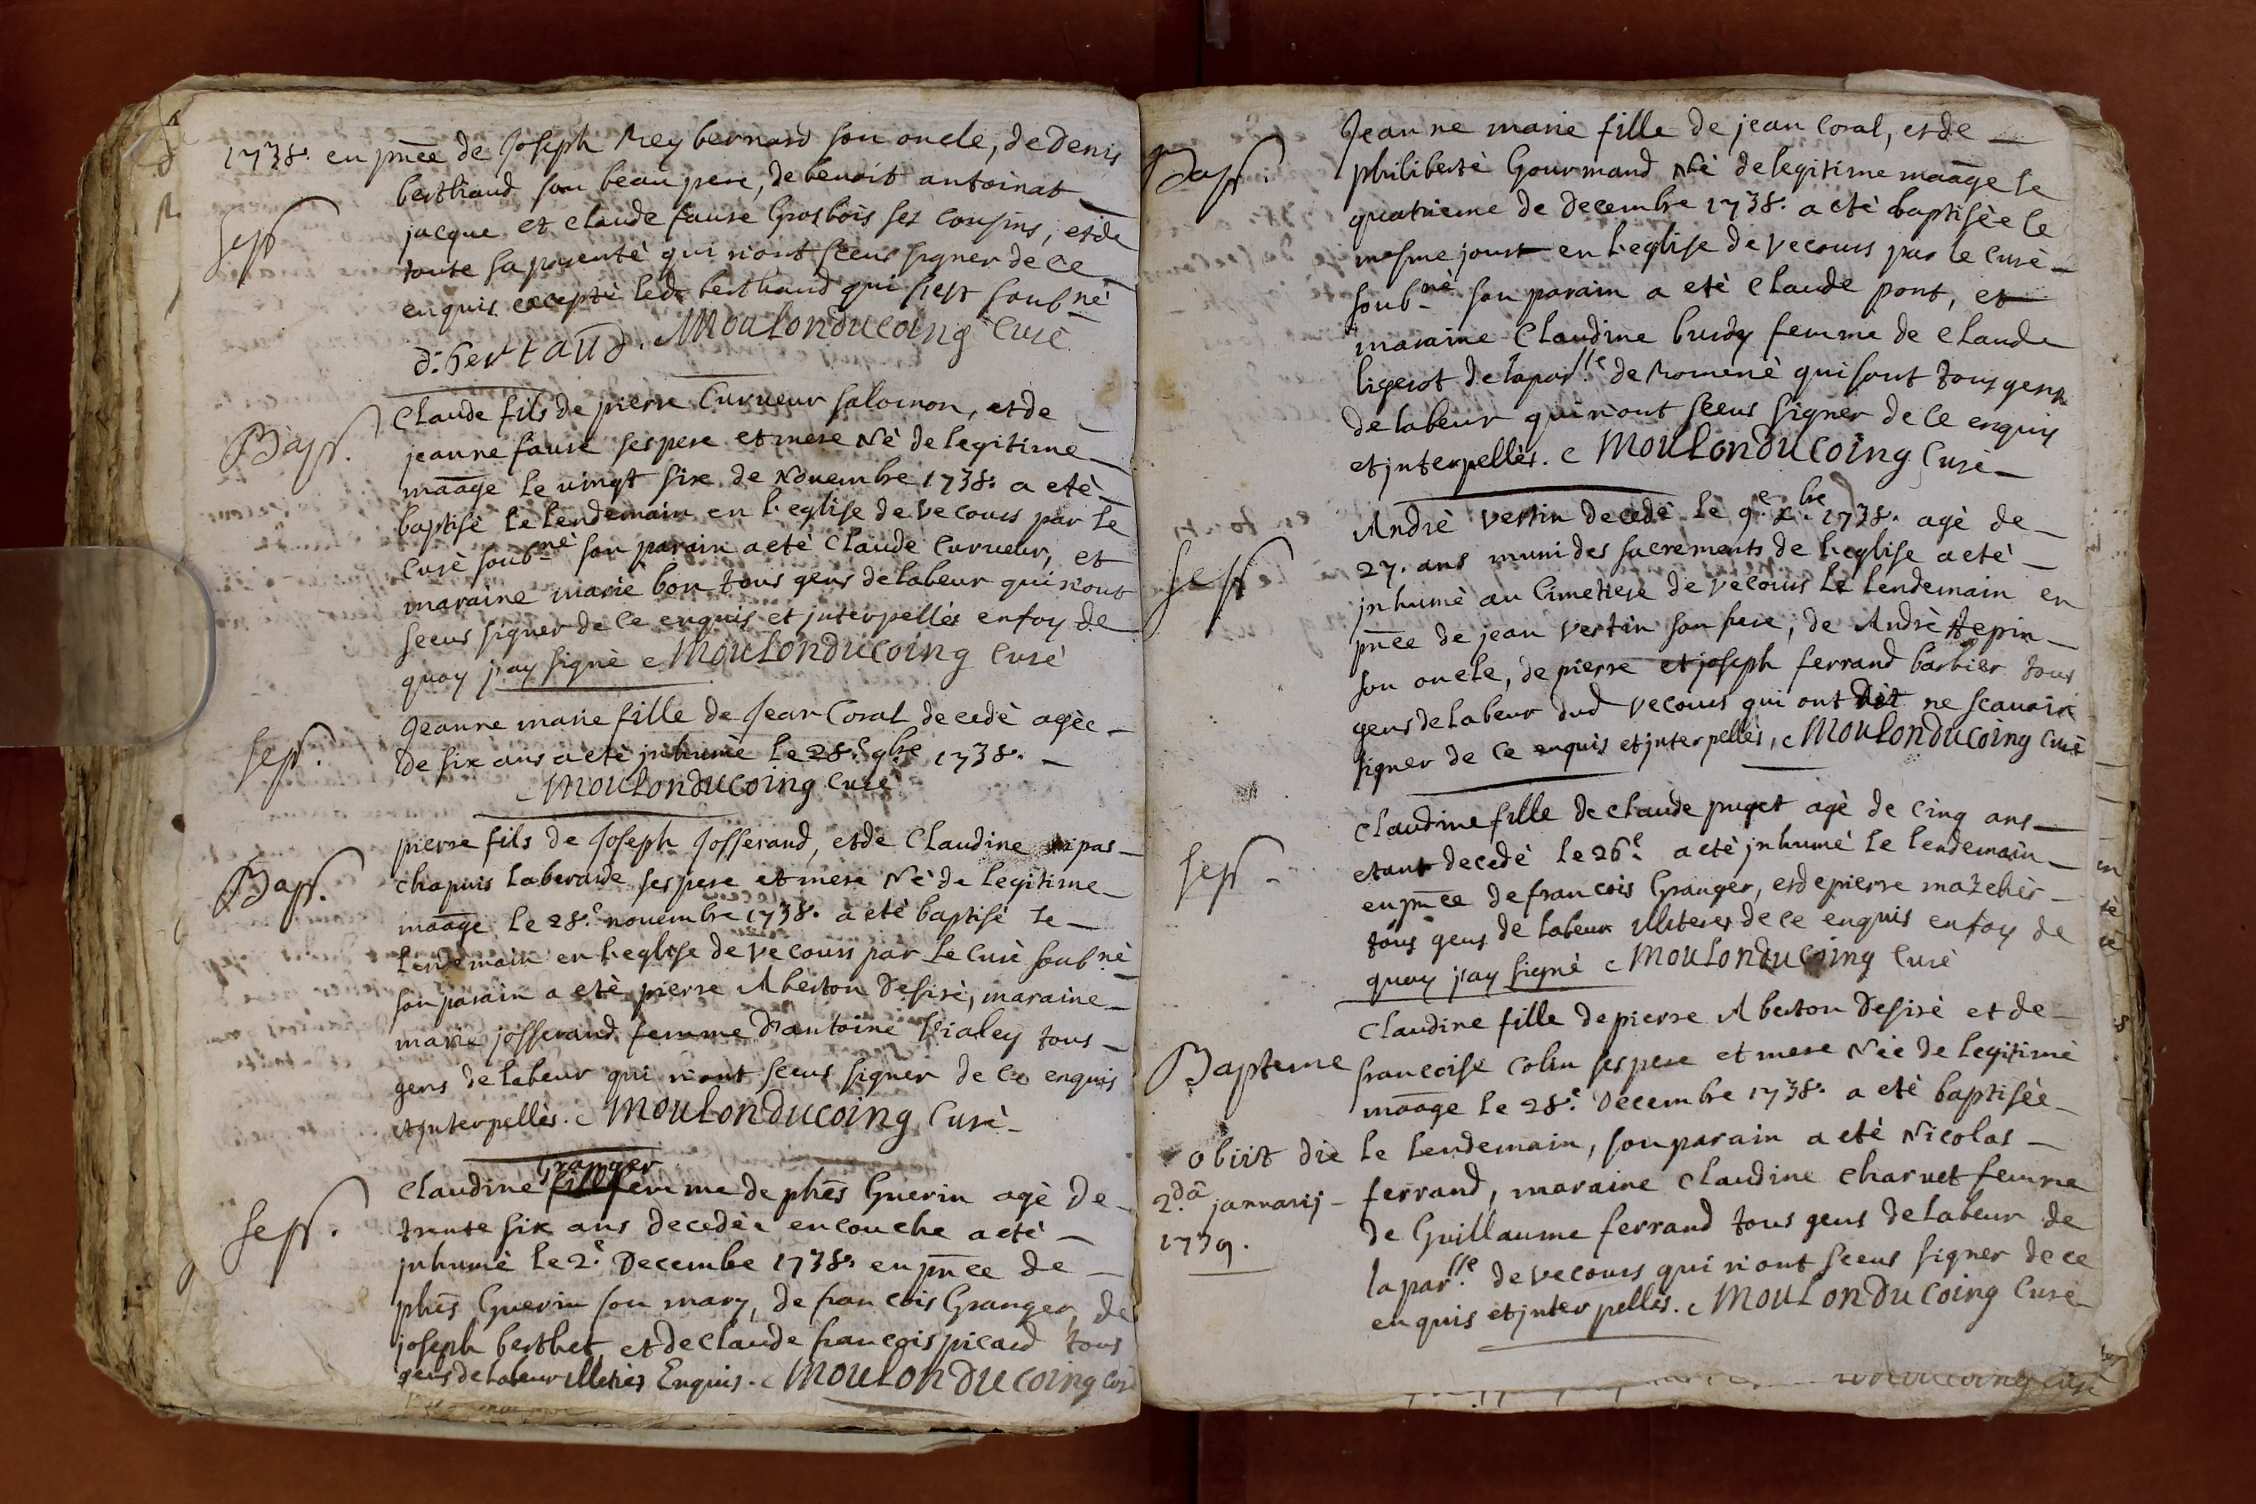 1738. en pnce de Joseph Rey bernard son oncle, de Denis
berthaud son beau pere, de benoit antoinat
Sep.
jacque et claude faure Grosbois ses cousins, et de
toute sa parenté qui n'ont sceus signer de ce
enquis excepté led berthaud qui s'est soub-né
d. bertaud. Moulonducoing Curé
Claude fils de pierre Curveur salomon, et de
Bap.
jeanne faure ses pere et mere Né de legitime
maage le vingt six de Novembre 1738. a eté
baptisé le lendemain en l'eglise de vecours par le
curé soub-né son parain a eté claude Curveur, et
maraine marie bon tous gens de labeur qui n'ont
sceus signer de ce enquis et jnterpellés en foy de
quoy j'ay signé Moulonducoing Curé
Jeanne marie fille de Jean Coral decedé agèe
Sep.
de six ans a eté jnhumé le 28.e 9bre 1738.
Moulonducoing Curé
pierre fils de Joseph Josserand, et de Claudine
Bap.
chapuis laberarde ses pere et mere Né de legitime
maage le 28.e novembre 1738. a eté baptisé le
lendemain en l'eglise de vecours par le Curé soub-né
son parain a eté pierre Aberton Desiré, maraine
marie josserand femme d'antoine Vialey tous
gens de labeur qui n'ont sceus signer de ce enquis
et jnterpellés. Moulonducoing Curé
Granger
Claudine fill femme de phēs Guerin agé de
Sep.
trente six ans decedée en couche a eté
jnhumé le 2.e Decembre 1738. en pnce de
phēs Guerin son mary, de francois Granger, de
joseph berthet et de claude francois picard tous
gens de labeur illiterés Enquis. Moulonducoing Curé
Jeanne marie fille de jean Coral, et de
Bap.
philiberté Gourmand Né de legitime maage le
quatrieme de Decembre 1738. a eté baptisèe le
mesme jour en l'eglise de vecours par le Curé
soub-né son parain a eté claude pont, et
maraine Claudine burdy femme de claude
ligerot de la par.sse de Romené qui sont tous gens
de labeur qui n'ont sceus signer de ce enquis
et jnterpellés. Moulonducoing Curé
André vertin decedé le 9.e x.bre 1738. agé de
Sep
27. ans muni des sacrements de l'eglise a eté
jnhumé au Cimetiere de vecours le lendemain en
pnce de jean vertin son frere, de André tepin
son oncle, de pierre et joseph ferrand barbier tous
gens de labeur dud vecours qui ont dit ne scavoir
signer de ce enquis et jnterpellés, Moulonducoing Curé
Claudine fille de claude puget agé de cinq ans
Sep.
etant decedé le 26.e a eté jnhumé le lendemain
en pnce de francois Granger, et de pierre mazchér
tous gens de labeur illiteres de ce enquis en foy de
quoy j'ay signé Moulonducoing Curé
Claudine fille de pierre Aberton Desiré et de
Bapteme francoise colin ses pere et mere Née de legitime
maage le 28.e Decembre 1738. a eté baptisèe
obiit die le lendemain, son parain a eté Nicolas
2.da januarij ferrand, maraine Claudine Charvet femme
1739. de Guillaume ferrand tous gens de labeur de
la par.sse de vecours qui n'ont sceus signer de ce
enquis et jnterpellés. Moulonducoing Curé